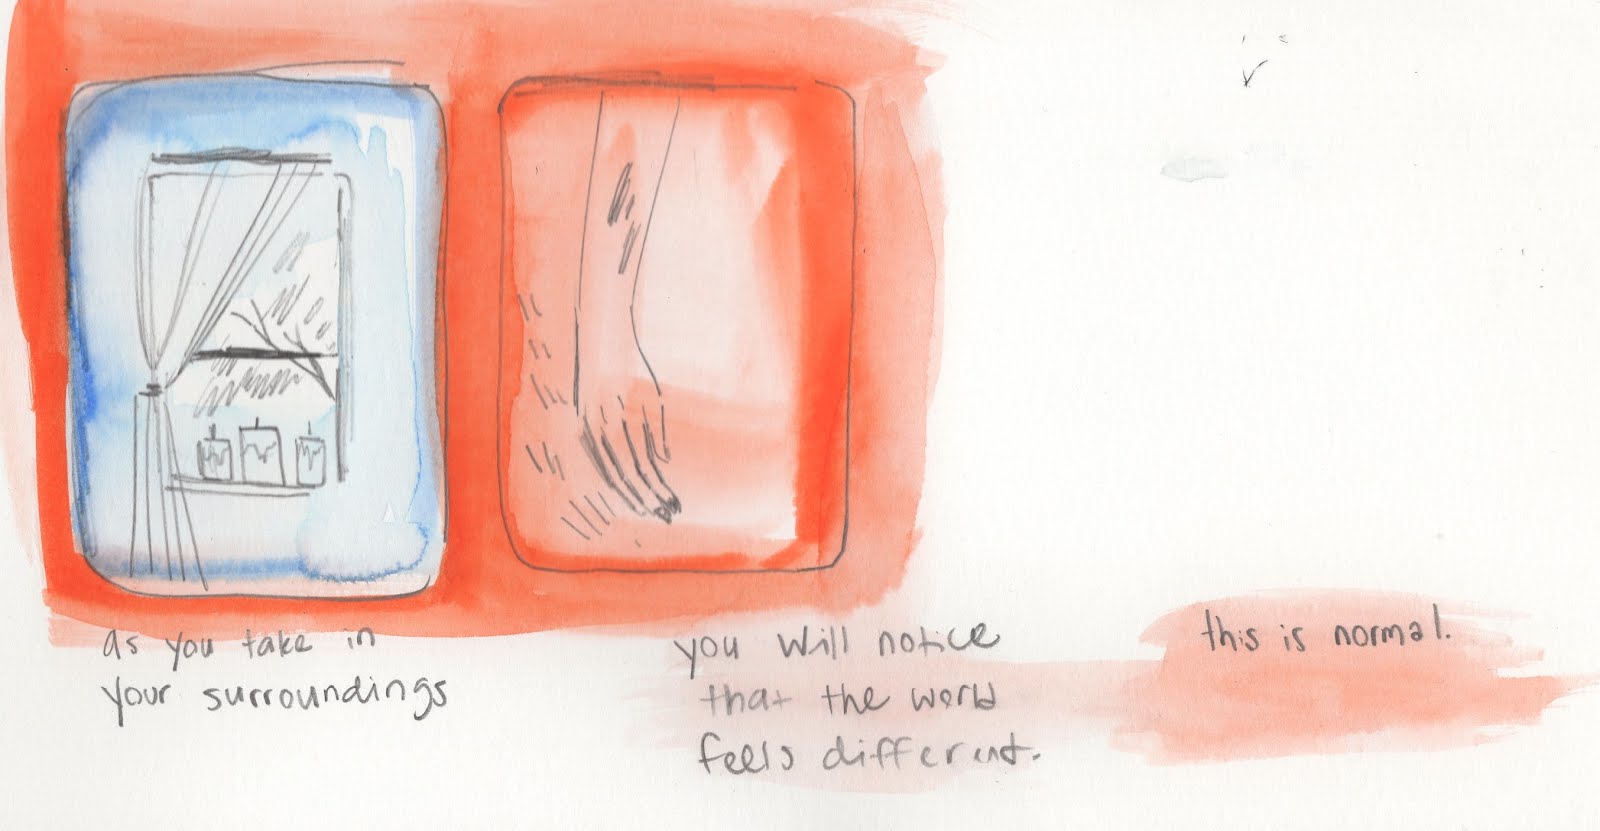 as you take in
your surroundings
you will notice
that the world
feels different.
this is normal.